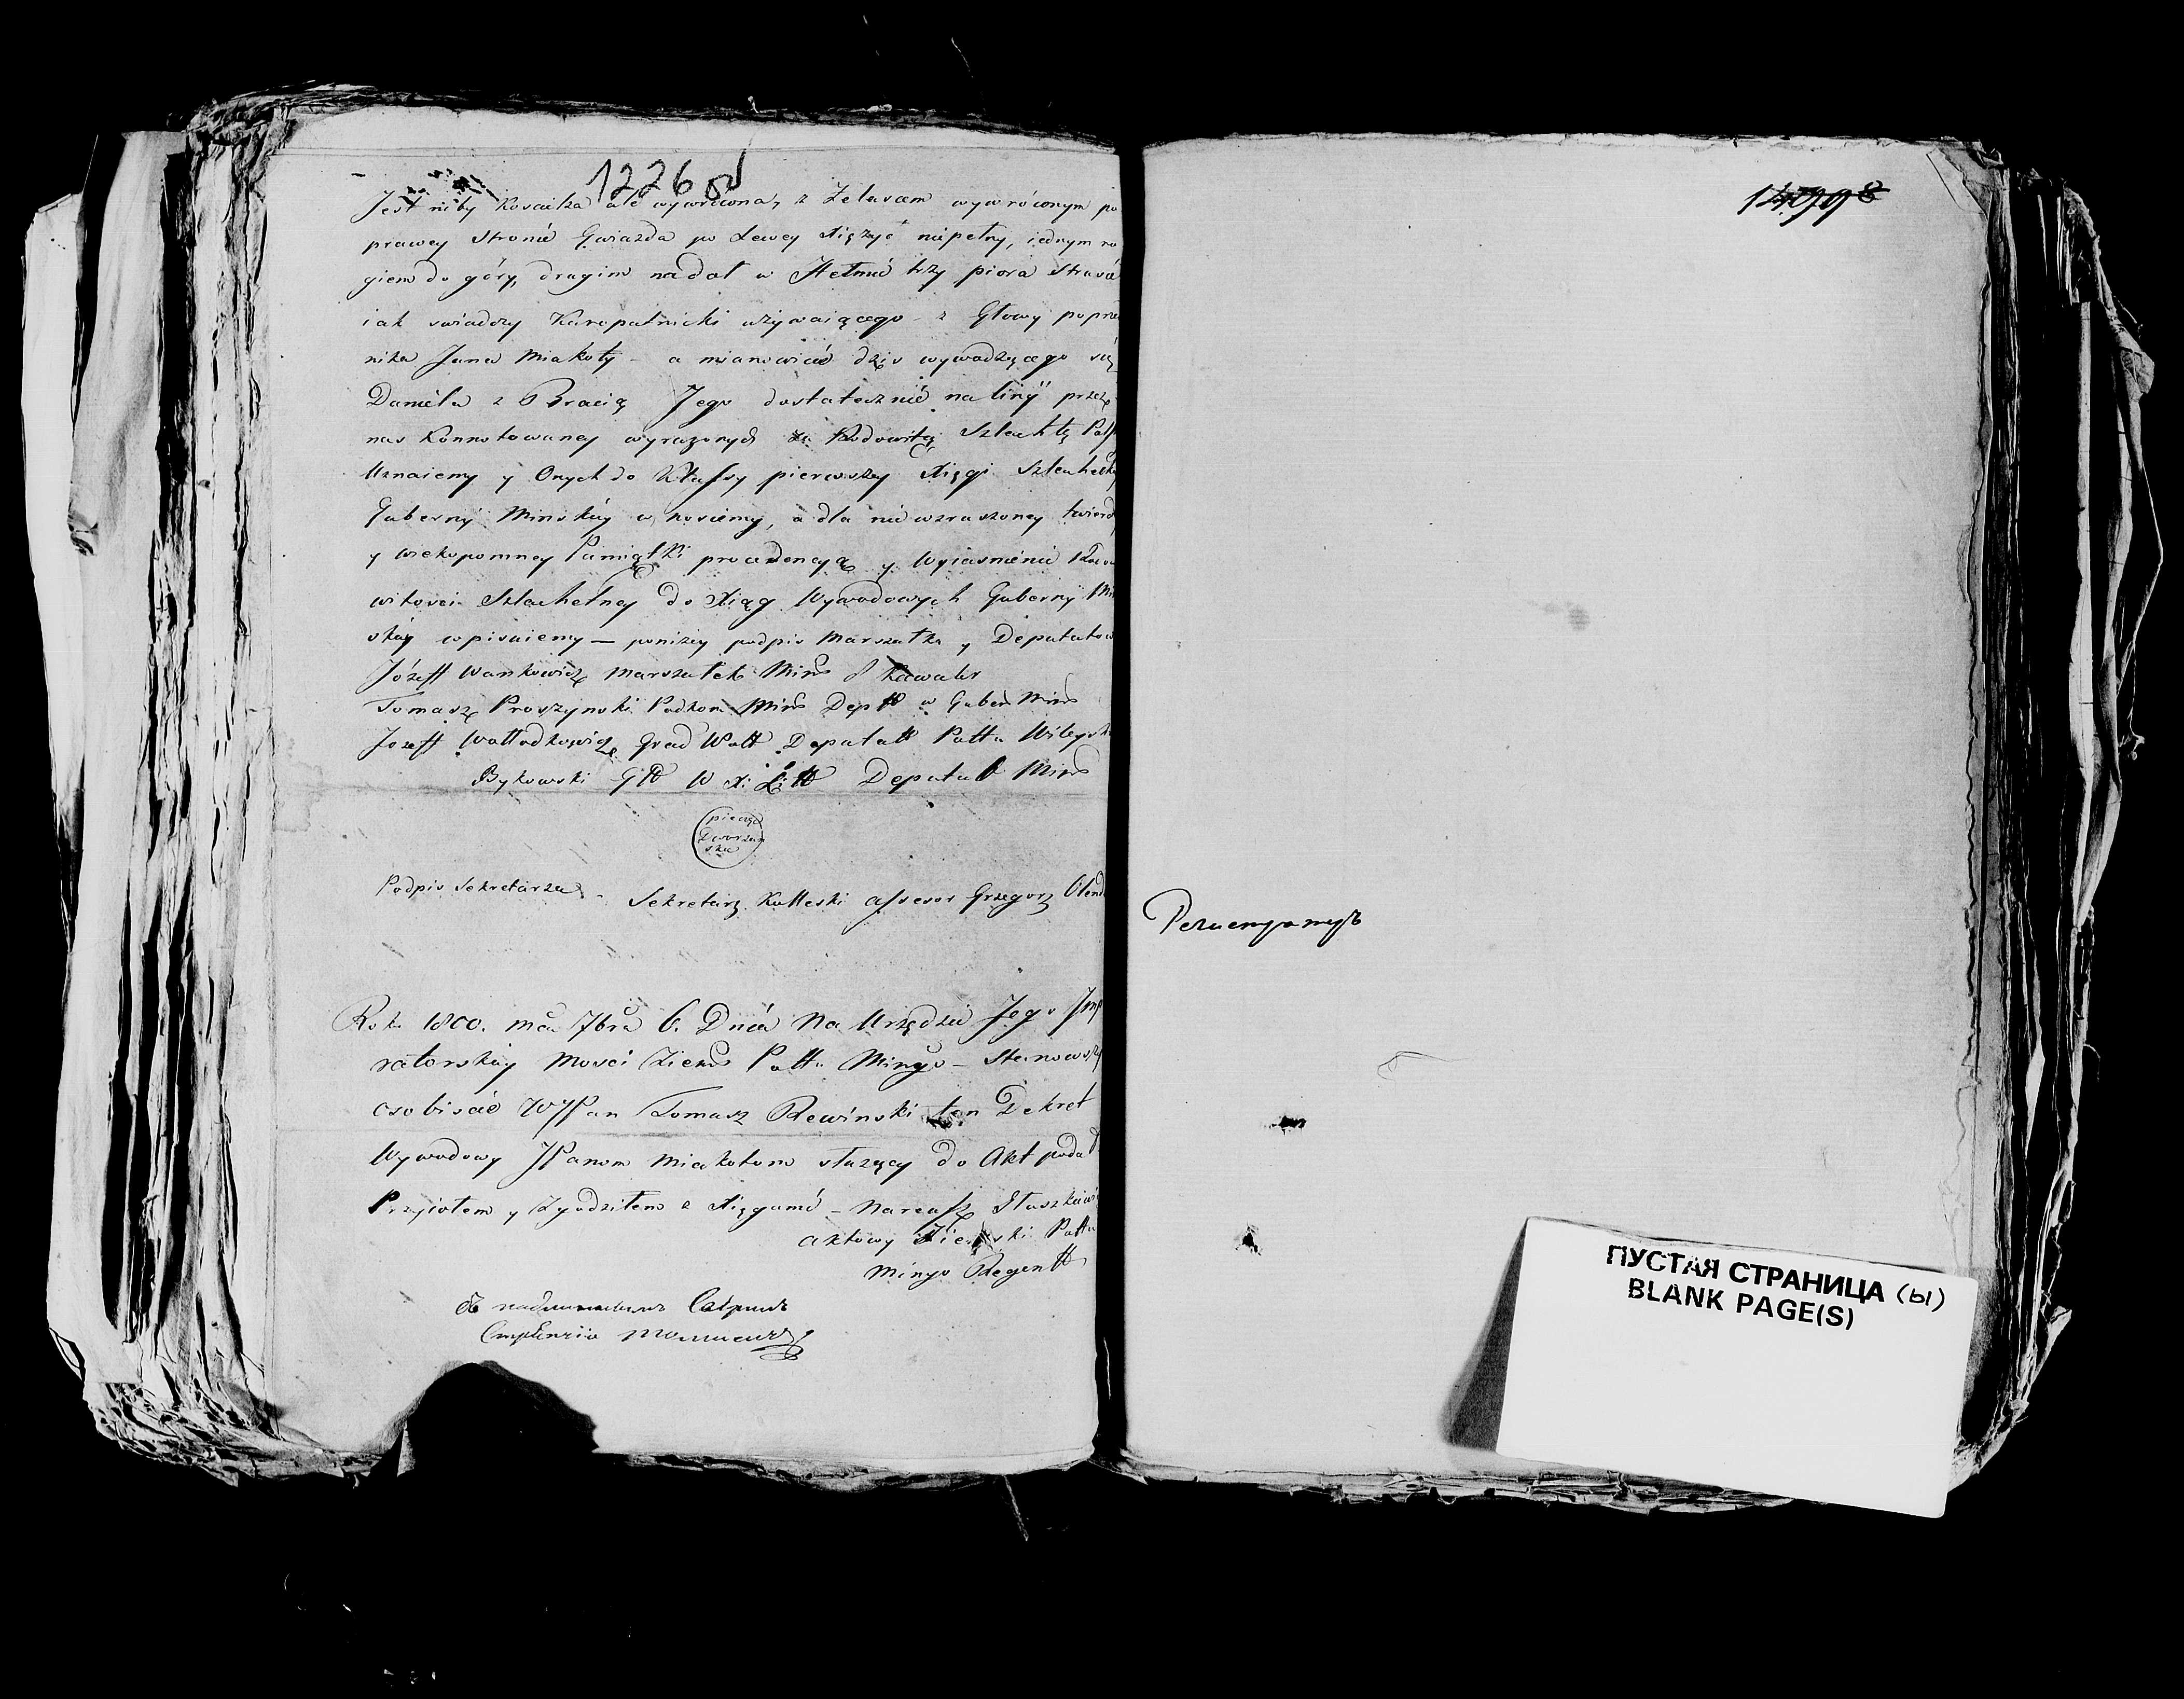 1226 об
Jest niby Kosciesza ale wywrócona, z Zelascem wywróconym po
prawey stronie Gwiazda po Lewey Xiężyc niepełny, iednym ro
giem do góry, drugim na doł w Hełmie trzy piora Strusie
iak swiadczy Kuropatnicki używaiącego z Głowy poprze
nika Jana Miakoty a mianowicie dziś wywodzącego się
Daniela z Bracią Jego dostatecznie na Liniÿ przez
nas Konnotowaney wyrażonych za Rodowitą Szlachtę
Uznaiemy y Onych do Klassy pierwszey Xięgi Szlachecki
Guberniÿ Minskiey wnosiemy, a dla niewzruszoney twierd
y wiekopomney Pamiątki procedencyą y Wyiasnienie Rodo
witości Szlachetney do Xiąg Wywodowych Guberny Mi
skiey wpisuiemy — poniżey podpis Marszałka y Deputatow
Józeff Wankowicz Marszałek Mins J Kawaler
Tomasz Proszynski Podkom Mins Deptt w Guber Mins
Jozeff Wołłodkowicz Grad Wott Deputatt Pottu Wileysk
Bykowski Gtt W Xi Litt Deputat Mins
pieczęć
Dworzan
ska
Podpis Sekretarza - Sekretarz Kolleski assesor Grzegorz
Roku 1800. mca 7bra 6. Dnia Na Urzędzie Jego Jmp
ratorskiey Mosci Ziems Pottu Mingo - Stanowszy
osobiscie WJPan Tomasz Rewinski ten Dekret
Wywodowy JPanom Miakotom służący do Akt poda
Przyiołem y Zgodziłem z Xięgami - Narcyss Staszkiewi
aktowy Ziemski Pottu
Mingo Regentt
Съ подлиннымъ
1499 8
Регистраторъ
ПУСТАЯ СТРАНИЦА (Ы)
BLANK PAGE(S)